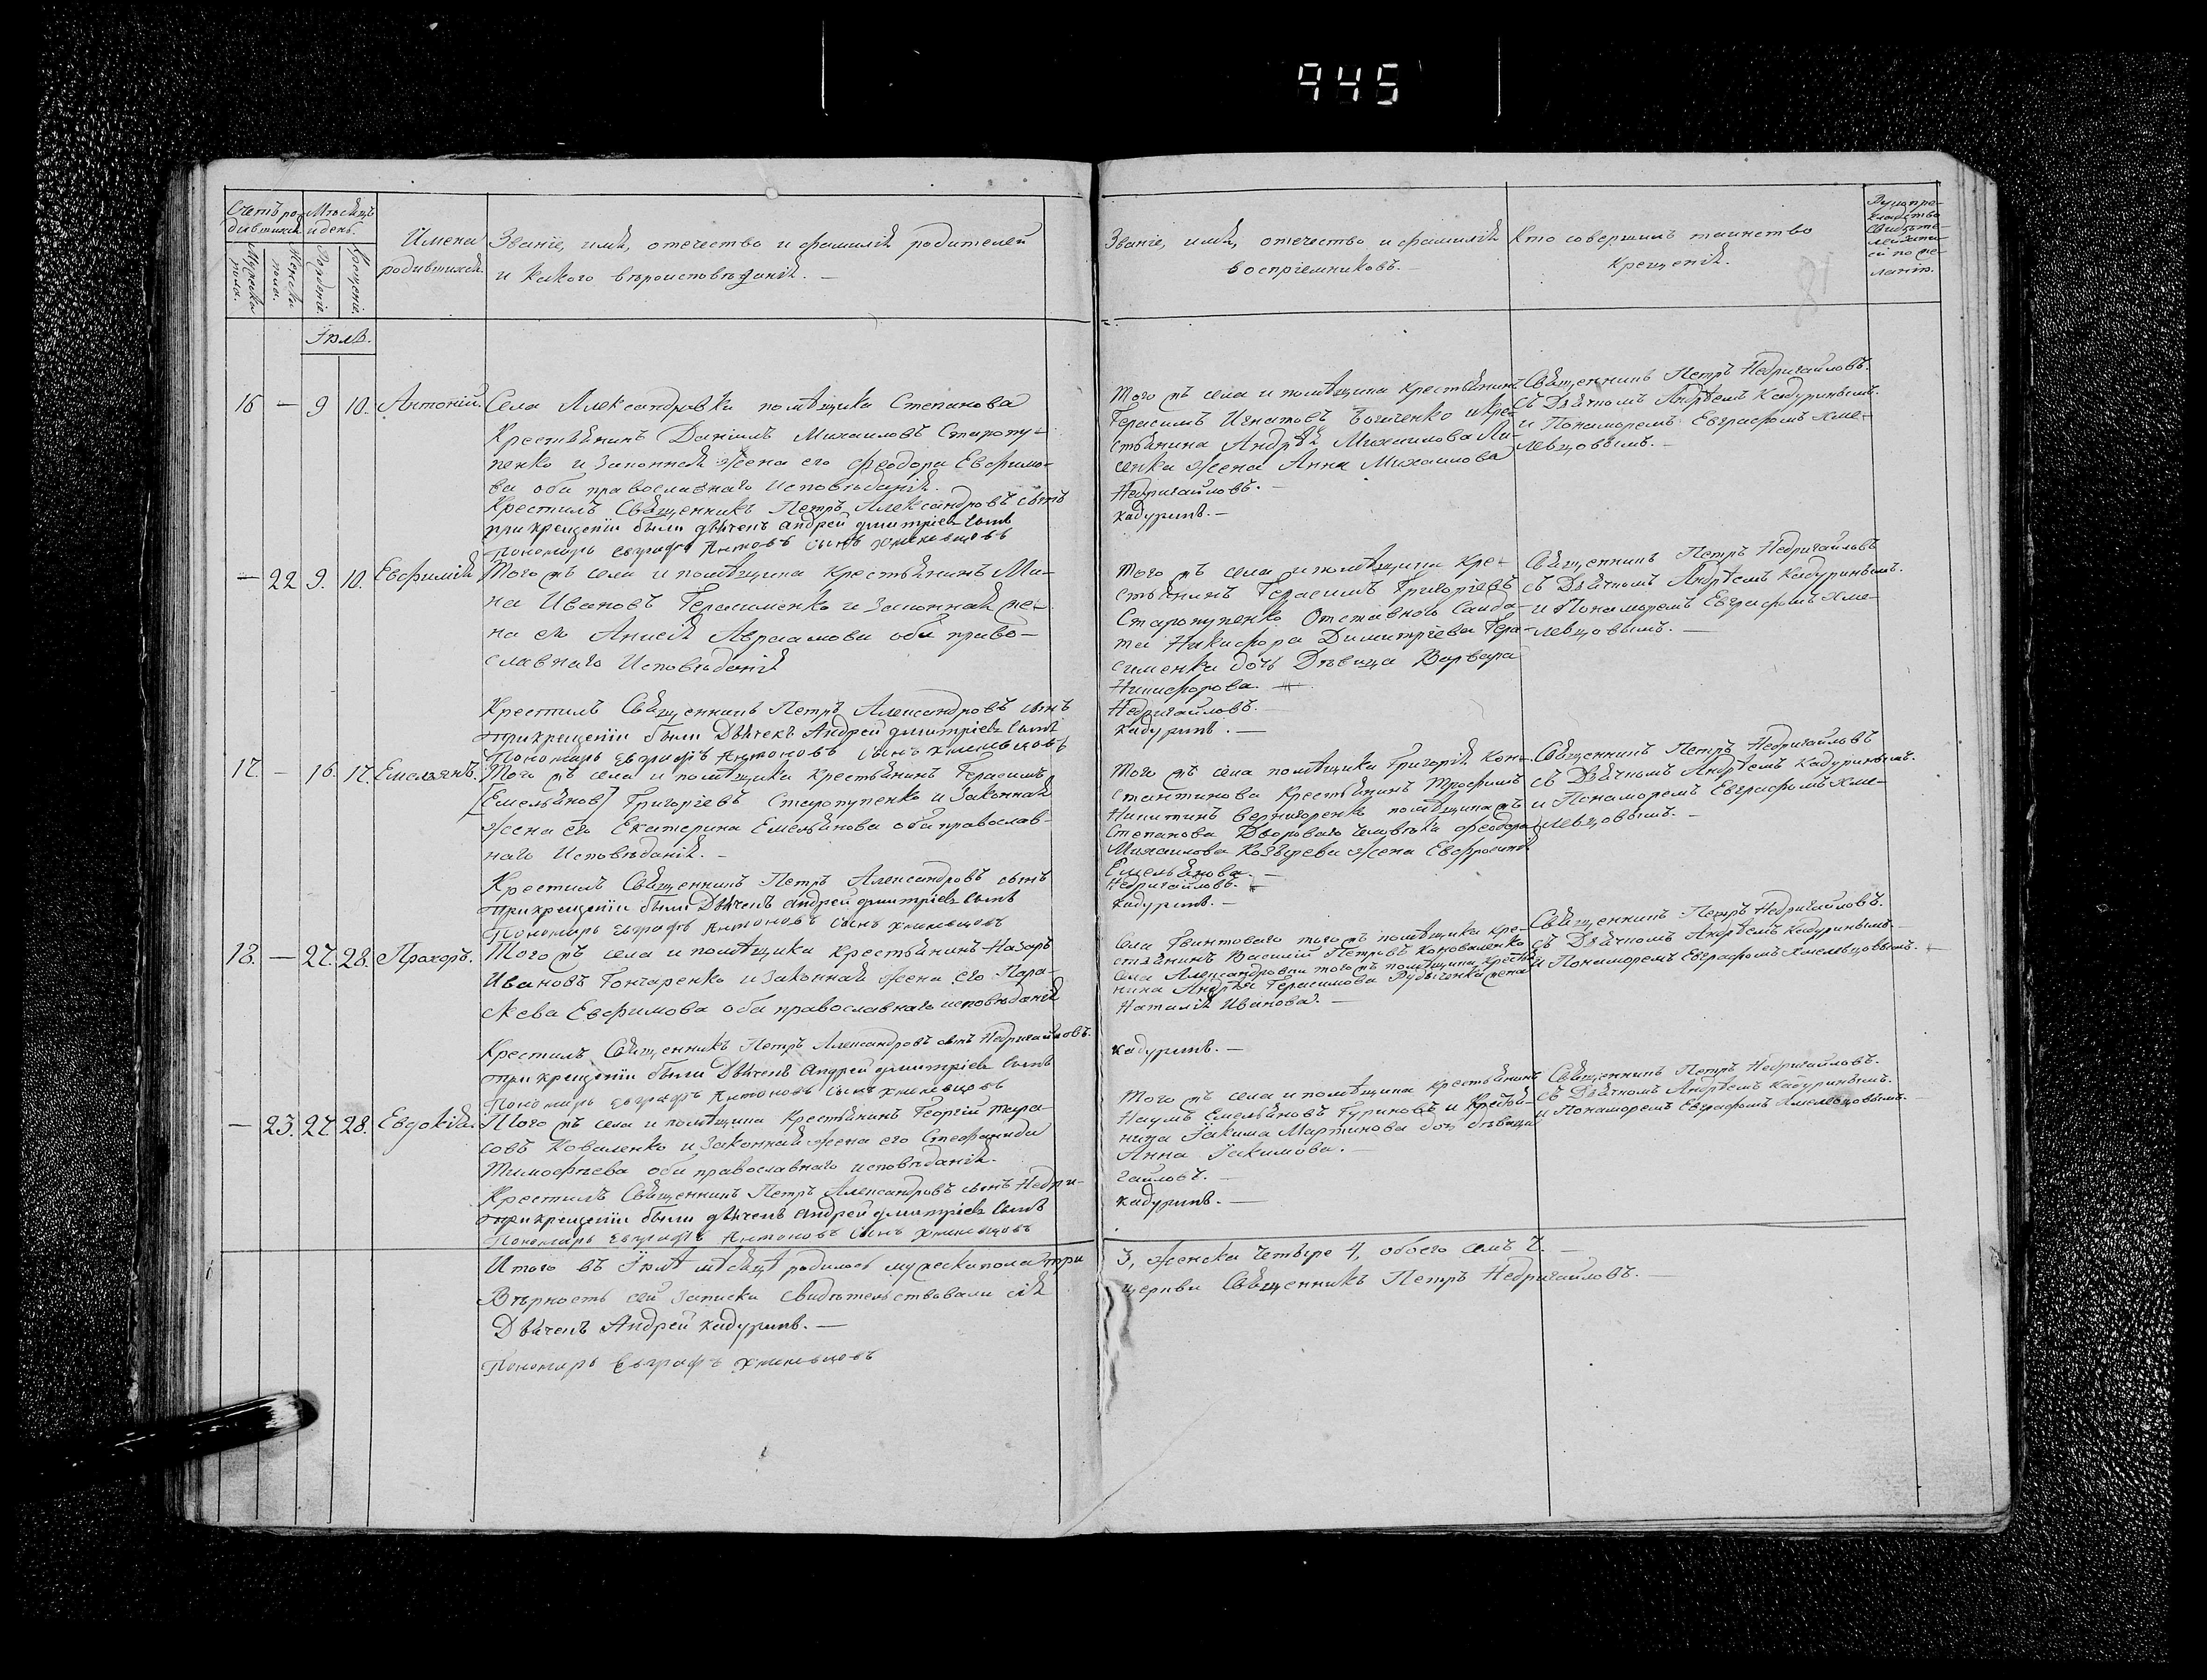 945
Счетъ ро-
дившихся
Мѣсяцъ
и день.
Имена
родившихся.
Званіе, имя, отечество и фамилія родителей
и какого вѣроисповѣданія. —
Званіе, имя, отечество и фамилія
воспріемниковъ. —
Кто совершилъ таинство
крещенія.
Рукопри-
кладство
свидѣте-
лей запи-
си по же-
ланію.
Мужеска
пола.
Женска
пола.
Рожденія.
Крещенія.
18
Іюля.
16 — 9 10. Антоній.
Села Александровки помѣщика Степанова
Крестьянинъ Даніилъ Михаиловъ Старопу-
пенко и законная жена его Феодора Евфимо-
ва оба православнаго исповѣданія.
Крестилъ Священникъ Петръ Александровъ сынъ
при крещеніи были дьячекъ Андрей Дмитріевъ сынъ
Пономарь Евграфъ Антоновъ сынъ Хмельцовъ
Того жъ села и помѣщика крестьянинъ
Герасимъ Игнатовъ и кре-
стьянина Андрея Михаилова Ли-
сенка жена Анна Михаилова
Недригайловъ. —
Кадуринъ. —
Священникъ Петръ Недригайловъ.
съ Дьячкомъ Андреемъ Кадуринымъ.
и Понамаремъ Евграфомъ Хме-
левцовымъ. —
— 22 9. 10. Евфимія
Того жъ села и помѣщика крестьянинъ Ми-
на Ивановъ Герасименко и законная же-
на его Анисія Авраамова оба право-
славнаго Исповѣданія
Крестилъ Священникъ Петръ Александровъ сынъ
при крещеніи были Дьячекъ Андрей Дмитріевъ сынъ
Пономарь Евграфъ Антоновъ сынъ Хмельцовъ
Того жъ села и помѣщика кре-
стьянинъ Герасимъ Григоріевъ
Старопупенко Отставнаго Солда-
та Никифора Димитріева Гера-
сименка дочь Дѣвица Варвара
Никифорова. —
Недригайловъ. —
Кадуринъ. —
Священникъ Петръ Недригайловъ
съ Дьячкомъ Андреемъ Кадуринымъ.
и Понамаремъ Евграфомъ Хме-
левцовымъ. —
17. — 16. 17. Емельянъ.
Того жъ села и помѣщика крестьянинъ Герасимъ
[Емельяновъ] Григоріевъ Старопупенко и законная
жена его Екатерина Емельянова оба православ-
наго Исповѣданія. —
Крестилъ Священникъ Петръ Александровъ сынъ
при крещеніи были Дьячекъ Андрей Дмитріевъ сынъ
Пономарь Евграфъ Антоновъ сынъ Хмельцовъ
Того жъ села помѣщика Григорія Кон-
стантинова крестьянинъ Трофимъ
Никитинъ Вернигоренко помѣщика жъ
Степанова Двороваго человѣка Феодора
Михаилова Козырева жена Евфросинія
Емельянова. —
Недригайловъ. —
Кадуринъ. —
Священникъ Петръ Недригайловъ
съ Дьячкомъ Андреемъ Кадуринымъ.
и Понамаремъ Евграфомъ Хме-
левцовымъ. —
18. — 27. 28. Прохоръ.
Того жъ села и помѣщика крестьянинъ Назаръ
Ивановъ Гончаренко и законная жена его Пара-
скева Евфимова оба православнаго исповѣданія
Крестилъ Священникъ Петръ Александровъ сынъ Недригайловъ.
при крещеніи были Дьячекъ Андрей Дмитріевъ сынъ
Пономарь Евграфъ Антоновъ сынъ Хмельцовъ
Села Гвинтоваго того жъ помѣщика кре-
стьянинъ Василій Петровъ Коноваленко
села Александровки того жъ помѣщика крестья
нина Андрея Герасимова жена
Наталія Иванова. —
Кадуринъ. —
Священникъ Петръ Недригайловъ.
съ Дьячкомъ Андреемъ Кадуринымъ. —
и Понамаремъ Евграфомъ Хмельцовымъ. —
— 23. 27. 28. Евдокія.
Того жъ села и помѣщика Крестьянинъ Георгій Тара-
совъ Коваленко и законная жена его Стефанида
Тимофѣева оба православнаго исповѣданія.
Крестилъ Священникъ Петръ Александровъ сынъ Недри-
при крещеніи были дьячекъ Андрей Дмитріевъ сынъ
Пономарь Евграфъ Антоновъ сынъ Хмельцовъ
Того жъ села и помѣщика крестьянинъ
Наумъ Емельяновъ Гуриновъ и
нина Іакима Мартинова дочь дѣвица
Анна Іакимова. —
гайловъ. —
Кадуринъ. —
Священникъ Петръ Недригайловъ.
съ Дьячкомъ Андреемъ Кадуринымъ.
и Понамаремъ Евграфомъ Хмелевцовымъ.
Итого въ Іюлѣ мѣсяцѣ родилось мужеска пола три
3, женска четыре 4, обоего семь 7. —
Вѣрность сей записки свидѣтельствовали сія
церкви Священникъ Петръ Недригайловъ. —
Дьячекъ Андрей Кадуринъ. —
Пономарь Евграфъ Хмельцовъ